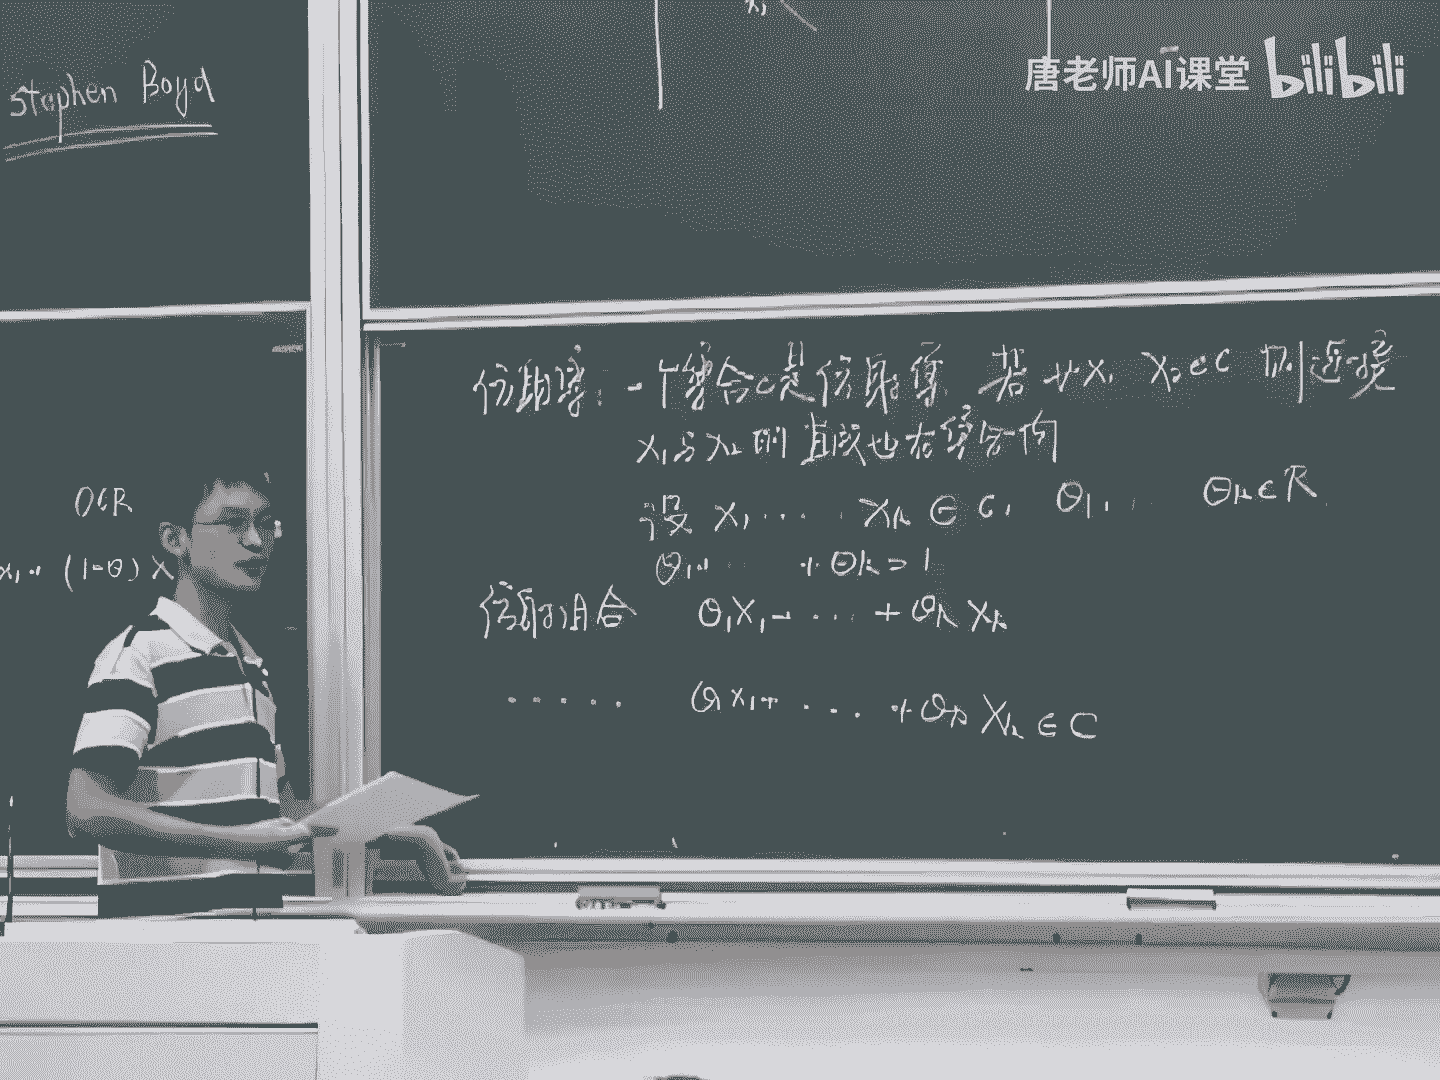 Stephen Boyd
x₁
唐老师AI课堂 bilibili
θ∈R
x₁+ (1-θ) x
仿射集: 一个集合C是仿射集, 若 ∀ x₁, x₂∈C 则连接
x₁与x₂的直线也在集合内
设 x₁ ····· xₖ ∈ C, θ₁, ·· θₖ∈R
θ₁+ ·· + θk = 1
仿射组合 θ₁x₁+ ··· + θₖ xₖ
····· θ₁x₁+ ··· + θₖ xₖ ∈ C